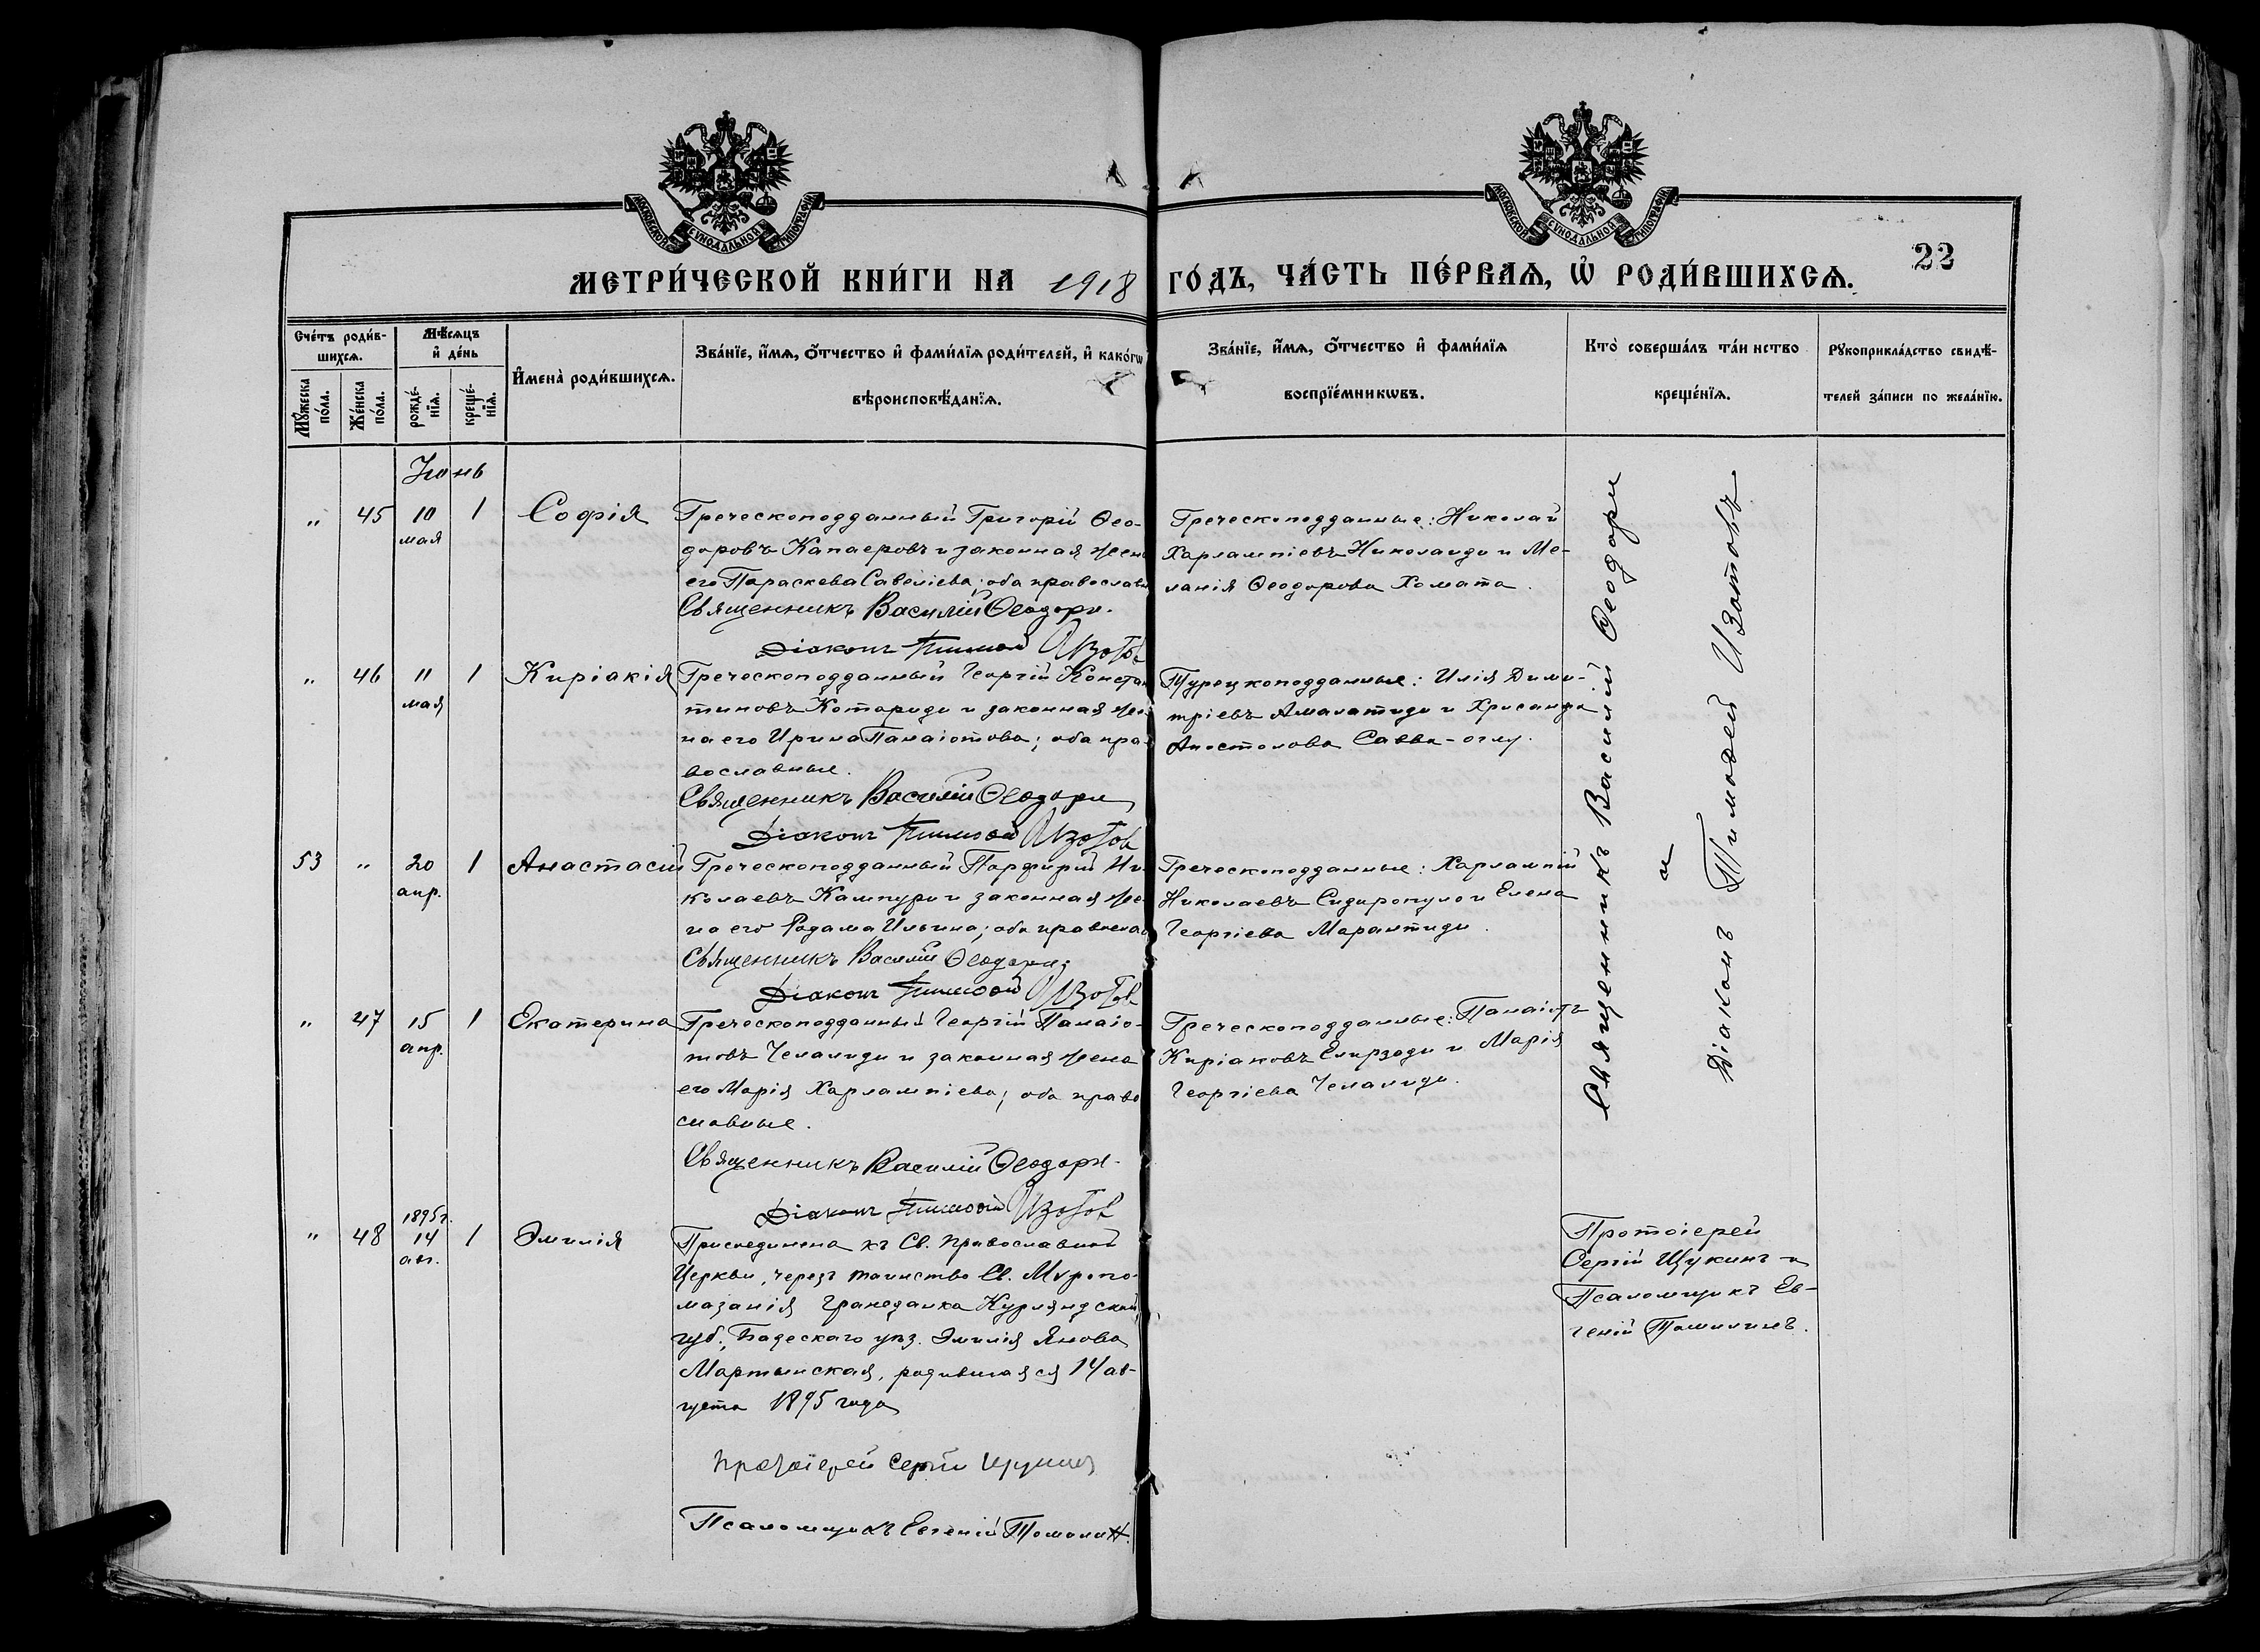 МОСКОВСКОЙ СѴНОДАЛЬНОЙ ТИПОГРАФІИ
МОСКОВСКОЙ СѴНОДАЛЬНОЙ ТИПОГРАФІИ
22
МЕТРИ́ЧЕСКОЙ КНИ́ГИ НА 1918 ГО́ДЪ, ЧА́СТЬ ПЕ́РВАѦ, Ѡ҆ РОДИ́ВШИХСѦ.
Сче́тъ роди́в-
шихсѧ.
Мꙋ́жеска по́ла.
Же́нска по́ла.
Мѣ́сѧцъ
и҆ де́нь
рожде́-
нїѧ.
креще́-
нїѧ.
И҆мена̀ роди́вшихсѧ.
Зва́нїе, и҆́мѧ, ѻ҆́тчество и҆ фами́лїѧ роди́телей, и҆ како́гѡ
вѣроисповѣ́данїѧ.
Зва́нїе, и҆́мѧ, ѻ҆́тчество и҆ фами́лїѧ
воспрїе́мникѡвъ.
Кто̀ соверша́лъ та́инство
креще́нїѧ.
Рꙋкоприкла́дство свидѣ́-
телей за́писи по жела́нїю.
Іюнь
" 45 10 мая 1 Софія
Греческоподданный Григорій Ѳео-
доровъ Капаеровъ и законная жена
его Параскева Савеліева; оба православн
Священникъ Василій Ѳеодори.
Діаконъ Тимофей Изотов
Греческоподданные: Николай
Харлампіевъ Николаиди и Ме-
ланія Ѳеодорова Хомата.
" 46 11 мая 1 Киріакія
Греческоподданный Георгій Констан
тиновъ Котариди и законная же-
на его Ирина Панаіотова; оба пра-
вославные.
Священникъ Василій Ѳеодори
Діаконъ Тимофей Изотов
Турецкоподданные: Илія Дими-
тріевъ Амалатиди и Хрисанфа
Апостолова Савва-оглу.
53 " 20 апр. 1 Анастасій
Греческоподданный Парфирій Ни-
колаевъ Кампури и законная же-
на его Родама Ильина; оба православ
Священникъ Василій Ѳеодори
Діаконъ Тимофей Изотов
Греческоподданные: Харлампій
Николаевъ Сидиропуло и Елена
Георгіева Марантиди.
" 47 15 апр. 1 Екатерина
Греческоподданный Георгій Панаіо-
товъ Челалиди и законная жена
его Марія Харлампіева; оба право
славные.
Священникъ Василій Ѳеодори.
Діаконъ Тимофей Изотов
Греческоподданные: Панаіотъ
Киріаковъ и Марія
Георгіева Челалиди.
Священникъ Василій Ѳеодори
и
Діаконъ Тимофей Изотовъ
" 48 1895г. 14 авг. 1 Эмилія
Присоединена къ Св. Православной
Церкви, черезъ таинство Св. Мѵропо-
мазанія гражданка Курляндской
губ., уѣз. Эмилія Янова
Мартынская, родившаяся 14 ав-
густа 1895 года
Протоіерей Сергій Щукинъ
Псаломщикъ Евгеній Томилин.
Протоіерей
Сергій Щукинъ и
Псаломщикъ Ев-
геній Томилинъ.